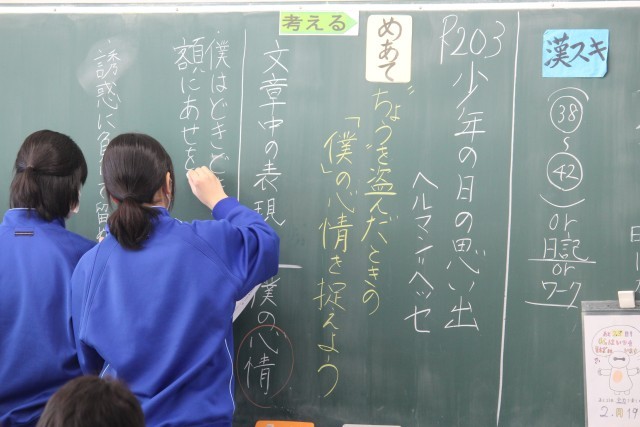 漢スキ
㊳
〜
㊷
or
日記
or
ワーク
P203 少年の日の思い出
ヘルマン=ヘッセ
めあて
ちょうを盗んだときの
「僕」の心情を捉えよう
考える
文章中の表現
僕の心情
・僕はどきど
額にあせを
・誘惑に負
2.
19